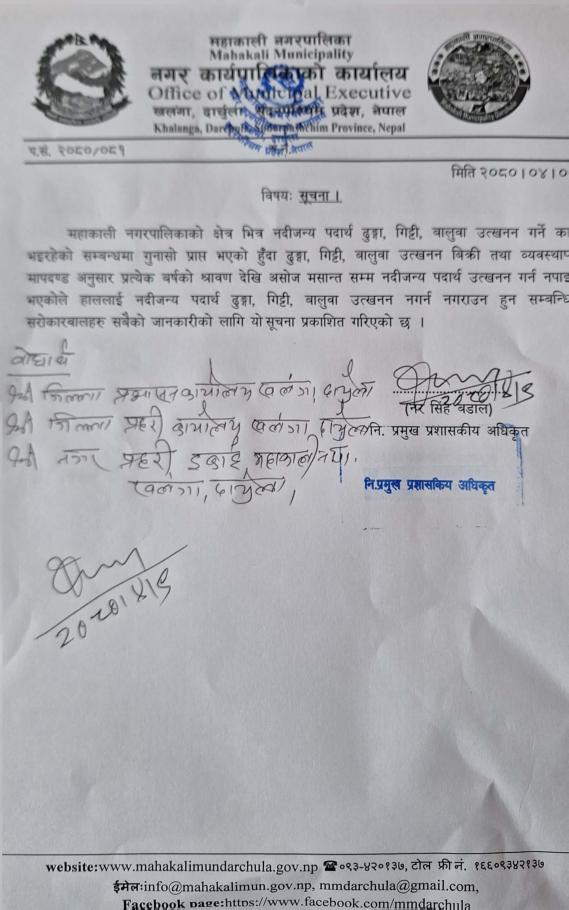 महाकाली नगरपालिका
Mahakali Municipality
नगर कार्यपालिकाको कार्यालय
Office of Municipal Executive
खलंगा, दार्चुला प्रदेश, नेपाल
Khalanga, Province, Nepal
प.सं. २०८०/०८१
मिति २०८०।०४।०
विषयः सूचना ।
महाकाली नगरपालिकाको क्षेत्र भित्र नदीजन्य पदार्थ ढुङ्गा, गिट्टी, बालुवा उत्खनन गर्ने का
भइरहेको सम्बन्धमा गुनासो प्राप्त भएको हुँदा ढुङ्गा, गिट्टी, बालुवा उत्खनन बिक्री तथा व्यवस्थाप
मापदण्ड अनुसार प्रत्येक बर्षको श्रावण देखि असोज मसान्त सम्म नदीजन्य पदार्थ उत्खनन गर्न नपाइ
भएकोले हाललाई नदीजन्य पदार्थ ढुङ्गा, गिट्टी, बालुवा उत्खनन नगर्न नगराउन हुन सम्बन्धि
सरोकारबालहरु सबैको जानकारीको लागि यो सूचना प्रकाशित गरिएको छ ।
बोधार्थ
श्री जिल्ला प्रशासन कार्यालय खलंगा, दार्चुला
(नर सिंह बडाल)
श्री जिल्ला प्रहरी कार्यालय खलंगा दार्चुला
नि. प्रमुख प्रशासकीय अधिकृत
श्री नगर प्रहरी इकाई, महाकाली न.पा.
खलंगा, दार्चुला,
नि.प्रमुख प्रशासकिय अधिकृत
website:www.mahakalimundarchula.gov.np ☎०९३-४२०१३७, टोल फ्री नं. १६६०९३४२१३७
ईमेलः:info@mahakalimun.gov.np, mmdarchula@gmail.com,
Facebook page:https://www.facebook.com/mmdarchula